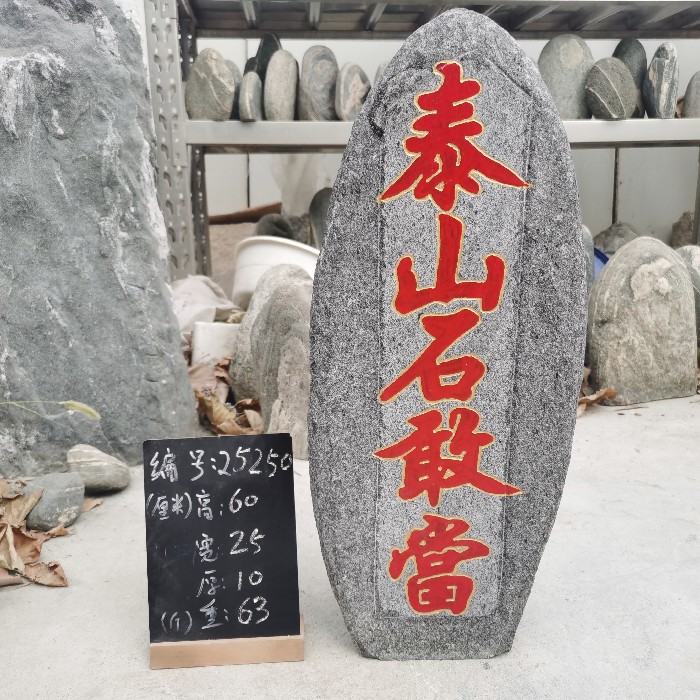 泰山石敢當
编号:25250
(厘米)高:60
宽:25
厚:10
(斤)重:63